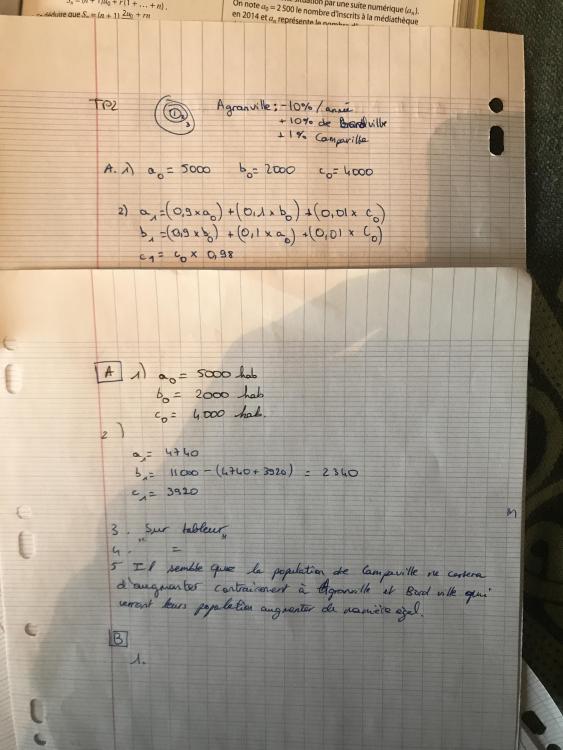 S_n = (n+1)u_0 + r(1 + ... + n).
déduire que S_n = (n+1) (2u_0 + rn
situation par une suite numérique (a_n).
On note a_0 = 2 500 le nombre d'inscrits à la médiathèque
en 2014 et a_n représente le nombre d'
TP2
Agranville : -10% / année
+ 10% de Bordville
+ 1% Campaville
A. 1) a_0 = 5000 b_0 = 2000 c_0 = 4000
2) a_1 = (0,9 x a_0) + (0,1 x b_0) + (0,01 x c_0)
b_1 = (0,9 x b_0) + (0,1 x a_0) + (0,01 x c_0)
c_1 = c_0 x 0,98
A 1) a_0 = 5000 hab
b_0 = 2000 hab
c_0 = 4000 hab.
2)
a_1 = 4740
b_1 = 11000 - (4740 + 3920) = 2340
c_1 = 3920
3. "Sur tableur"
4. =
5 Il semble que la population de Campaville ne cessera
d'augmenter contrairement à Agranville et Bord ville qui
verront leurs population augmenter de manière egal.
B
1.